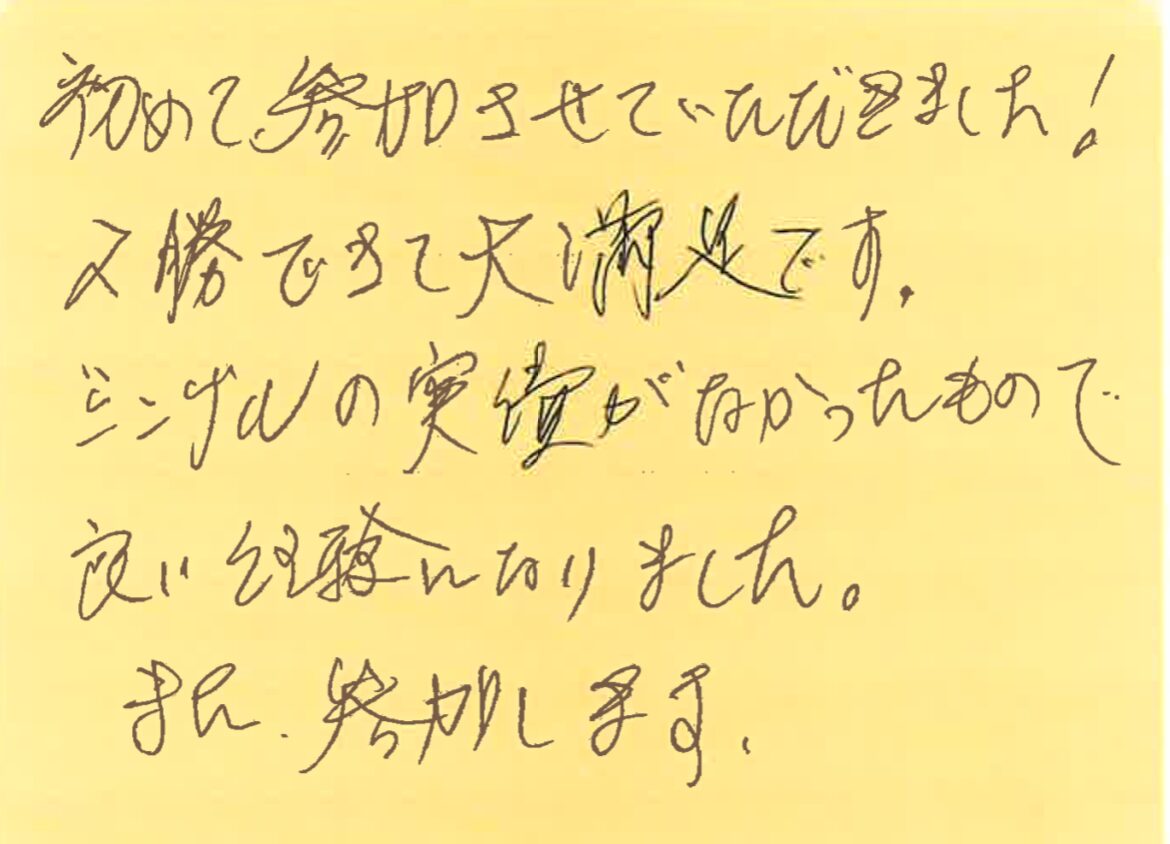 初めて参加させていただきました!
2勝できて大満足です.
シングルの実績がなかったもので
良い経験になりました。
また、参加します.